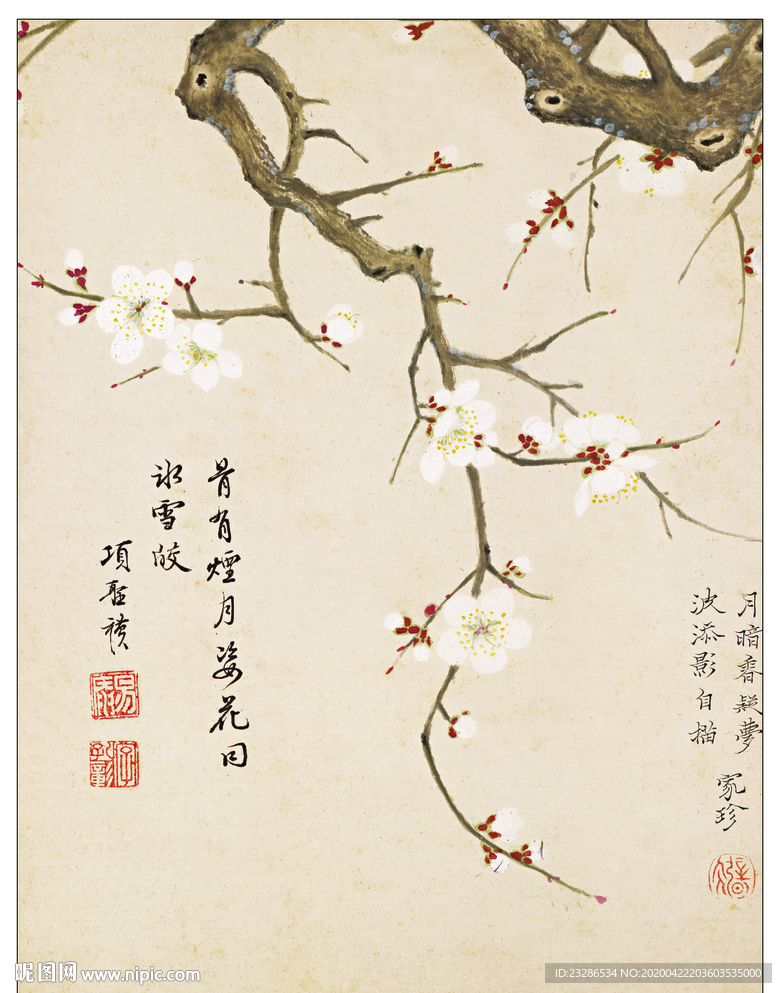 月暗香凝夢
波添影自描
家珍
骨有煙月姿花同
冰雪皎
項聖謨
昵图网 www.nipic.com
ID:23286534 NO:20200422203603535000